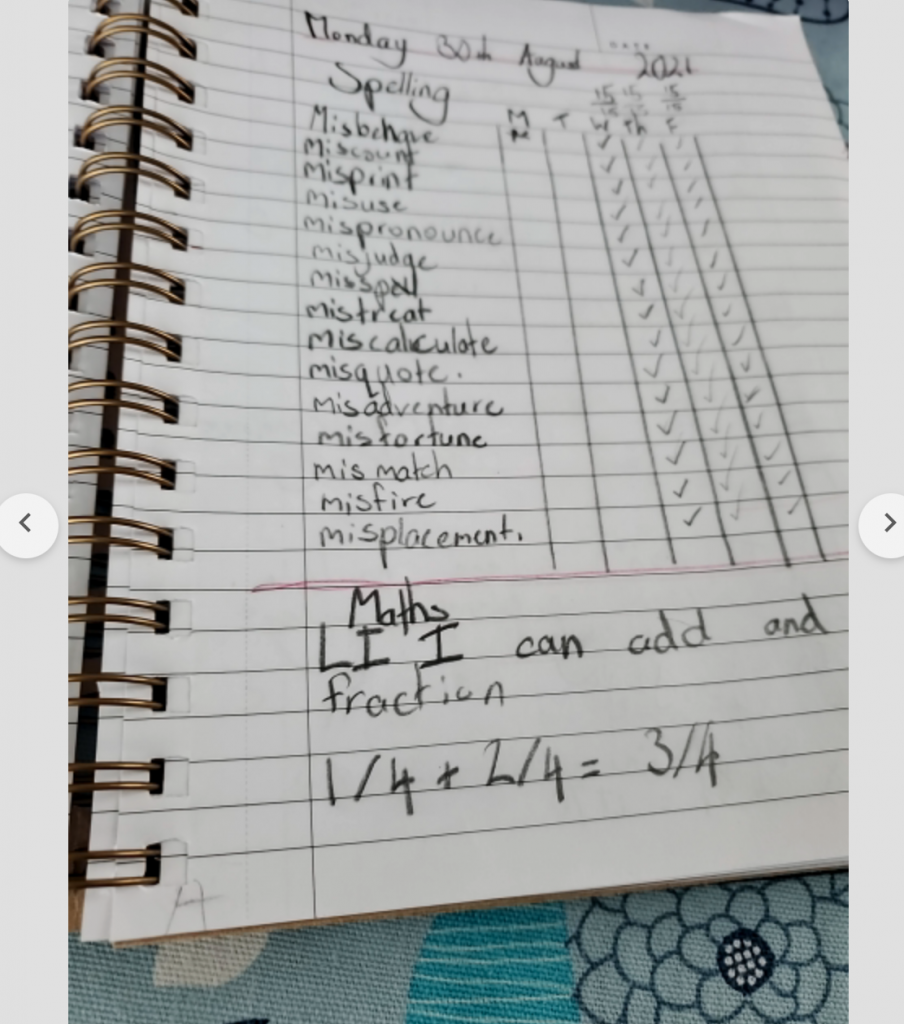 Monday 30th August 2021
Spelling 15/15 15/15 15/15
Misbehave M T W Th F
Miscount
Misprint
Misuse
mispronounce
misjudge
Misspell
mistreat
Miscalculate
misquote.
Misadventure
misfortune
mis match
misfire
misplacement.
Maths
LI I can add and
fraction
1/4 + 2/4 = 3/4
A